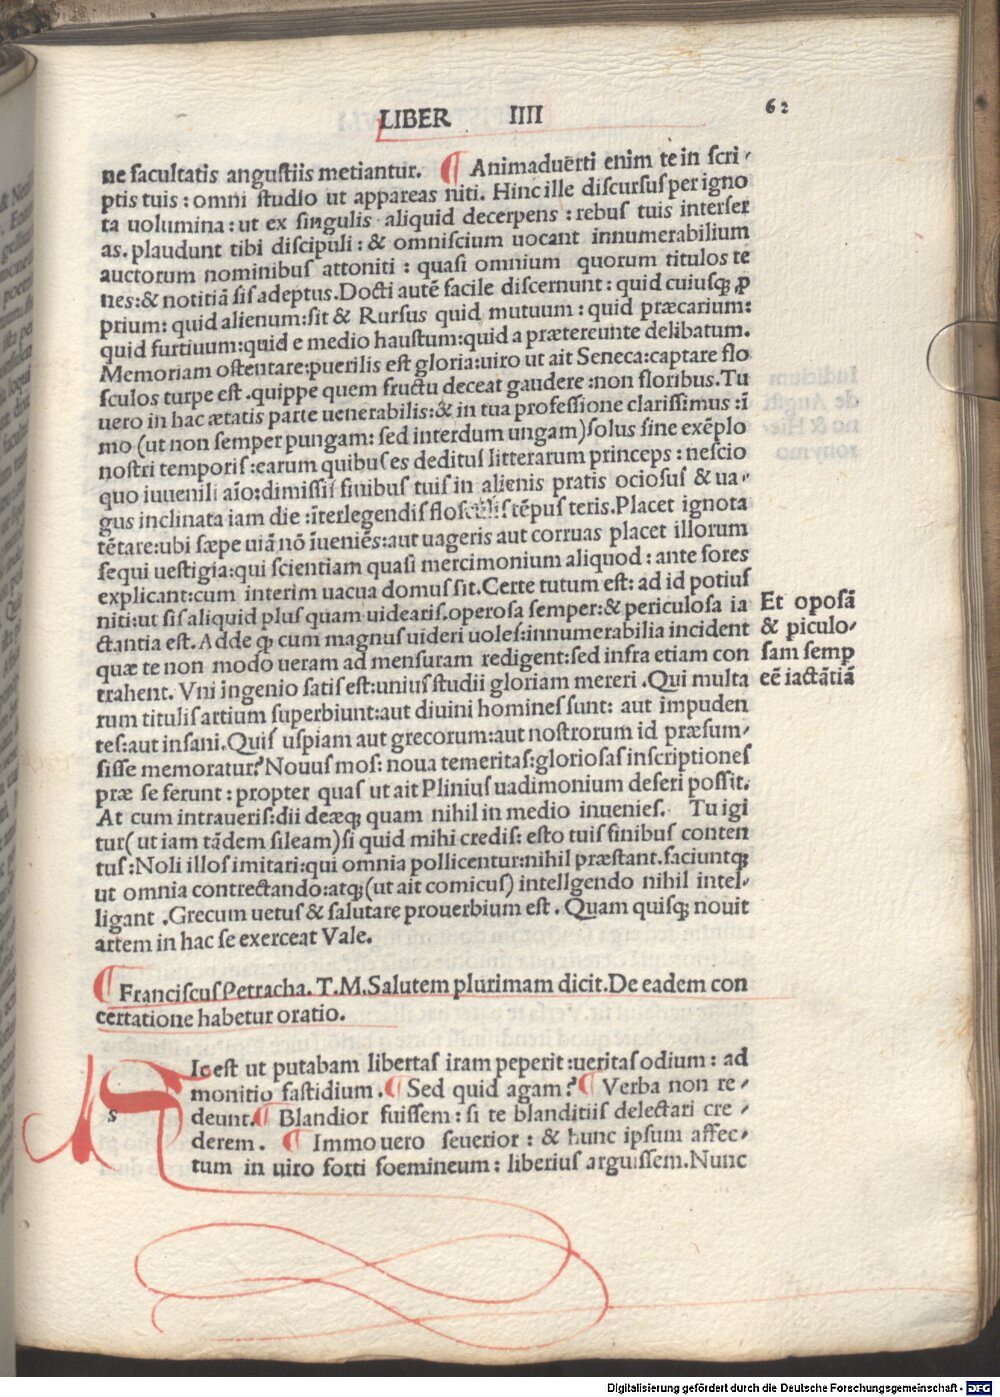 LIBER IIII 62
ne facultatis anguſtiis metiantur. ¶ Animaduẽrti enim te in ſcri-
ptis tuis : omni ſtudio ut appareas niti. Hinc ille diſcurſuſ per igno
ta uolumina : ut ex ſingulis aliquid decerpens : rebuſ tuis interſer
as. plaudunt tibi diſcipuli : & omniſcium uocant innumerabilium
auctorum nominibuſ attoniti : quaſi omnium quorum titulos te
nes:& notitiã ſiſ adeptus.Docti autẽ facile diſcernunt : quid cuiuſqꝫ ꝓ
prium: quid alienum:ſit & Rurſus quid mutuum : quid præcarium:
quid furtiuum:quid e medio hauſtum:quid a prætereunte delibatum.
Memoriam oſtentare:puerilis eſt gloria:uiro ut ait Seneca:captare flo
ſculos turpe eſt .quippe quem fructu deceat gaudere :non floribus.Tu
uero in hac ætatis parte uenerabilis:& in tua profeſſione clariſſimus :ĩ
mo (ut non ſemper pungam: ſed interdum ungam)ſolus ſine exẽplo
noſtri temporiſ :earum quibuſ es deditus litterarum princeps : neſcio
quo iuuenili aĩo:dimiſſiſ finibuſ tuiſ in alienis pratis ocioſuſ & ua-
gus inclinata iam die :ĩterlegendiſ floſculiſ tẽpuſ teris.Placet ignota
tẽtare:ubi ſæpe uiã nõ ĩueniẽs:aut uageris aut corruas placet illorum
ſequi ueſtigia:qui ſcientiam quaſi mercimonium aliquod : ante fores
explicant:cum interim uacua domuſ ſit.Certe tutum eſt: ad id potiuſ
niti:ut ſiſ aliquid pluſ quam uideariſ.operoſa ſemper:& periculoſa ia
ctantia eſt.Adde ꝙ cum magnuſ uideri uoleſ:innumerabilia incident
quæ te non modo ueram ad menſuram redigent:ſed infra etiam con
trahent. Vni ingenio ſatiſ eſt:uniuſ ſtudii gloriam mereri .Qui multa
rum tituliſ artium ſuperbiunt:aut diuini homineſ ſunt: aut impuden
teſ:aut inſani.Quiſ uſpiam aut grecorum:aut noſtrorum id præſum-
ſiſſe memoratur?Nouuſ moſ: noua temeritaſ:glorioſaſ inſcriptioneſ
præ ſe ferunt : propter quaſ ut ait Pliniuſ uadimonium deſeri poſſit.
At cum intraueriſ:dii deæqꝫ quam nihil in medio inuenieſ. Tu igi
tur( ut iam tãdem ſileam)ſi quid mihi crediſ: eſto tuiſ finibuſ conten
tuſ :Noli illoſ imitari:qui omnia pollicentur:nihil præſtant.faciuntqꝫ
ut omnia contrectando:atqꝫ(ut ait comicuſ) intellgendo nihil intel-
ligant .Grecum uetuſ & ſalutare prouerbium eſt . Quam quiſqꝫ nouit
artem in hac ſe exerceat Vale.
Et opoſã
& piculo-
ſam ſemp
eẽ iactãtiã
¶ Franciſcuſ Petracha. T.M.Salutem plurimam dicit.De eadem con
certatione habetur oratio.
S s Ic eſt ut putabam libertaſ iram peperit :ueritaſ odium : ad
monitio faſtidium . ¶ Sed quid agam? ¶ Verba non re-
deunt. ¶ Blandior fuiſſem : ſi te blanditiiſ delectari cre -
derem . ¶ Immo uero ſeuerior : & hunc ipſum affec-
tum in uiro forti foemineum : liberiuſ arguiſſem.Nunc
Digitalisierung gefördert durch die Deutsche Forschungsgemeinschaft - DFG